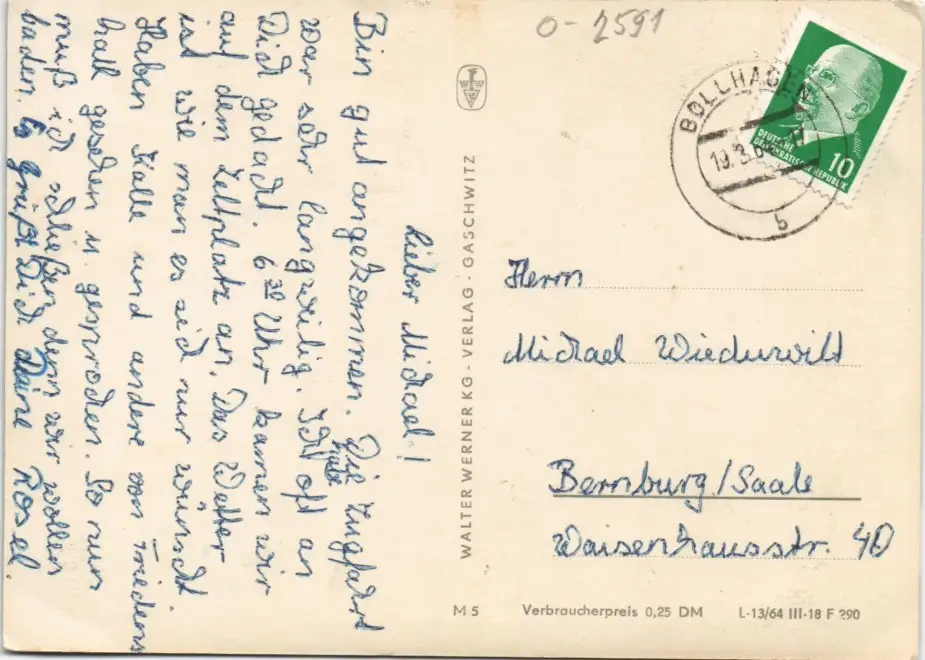 Lieber Michael!
Bin gut angekommen. Die Zugfahrt
war sehr langweilig. Ich habe oft an
Dich gedacht. 6 30 Uhr kamen wir
auf dem Zeltplatz an. Das Wetter
ist wie man es sich nur wünscht.
Haben Kalle und andere von Friedens
hall gesehen u. gesprochen. So nun
muß ich schließen denn wir wollen
baden. Es grüßt Dich Deine Rosel.
WALTER WERNER KG · VERLAG · GASCHWITZ
0-2591
BOLLHAGEN
19.3.6
b
DEUTSCHE
DEMOKRATISCHE REPUBLIK
10
Herrn
Michael Wiederwilt
Bernburg/Saale
Waisenhausstr. 40
M 5 Verbraucherpreis 0,25 DM L-13/64 III-18 F 290